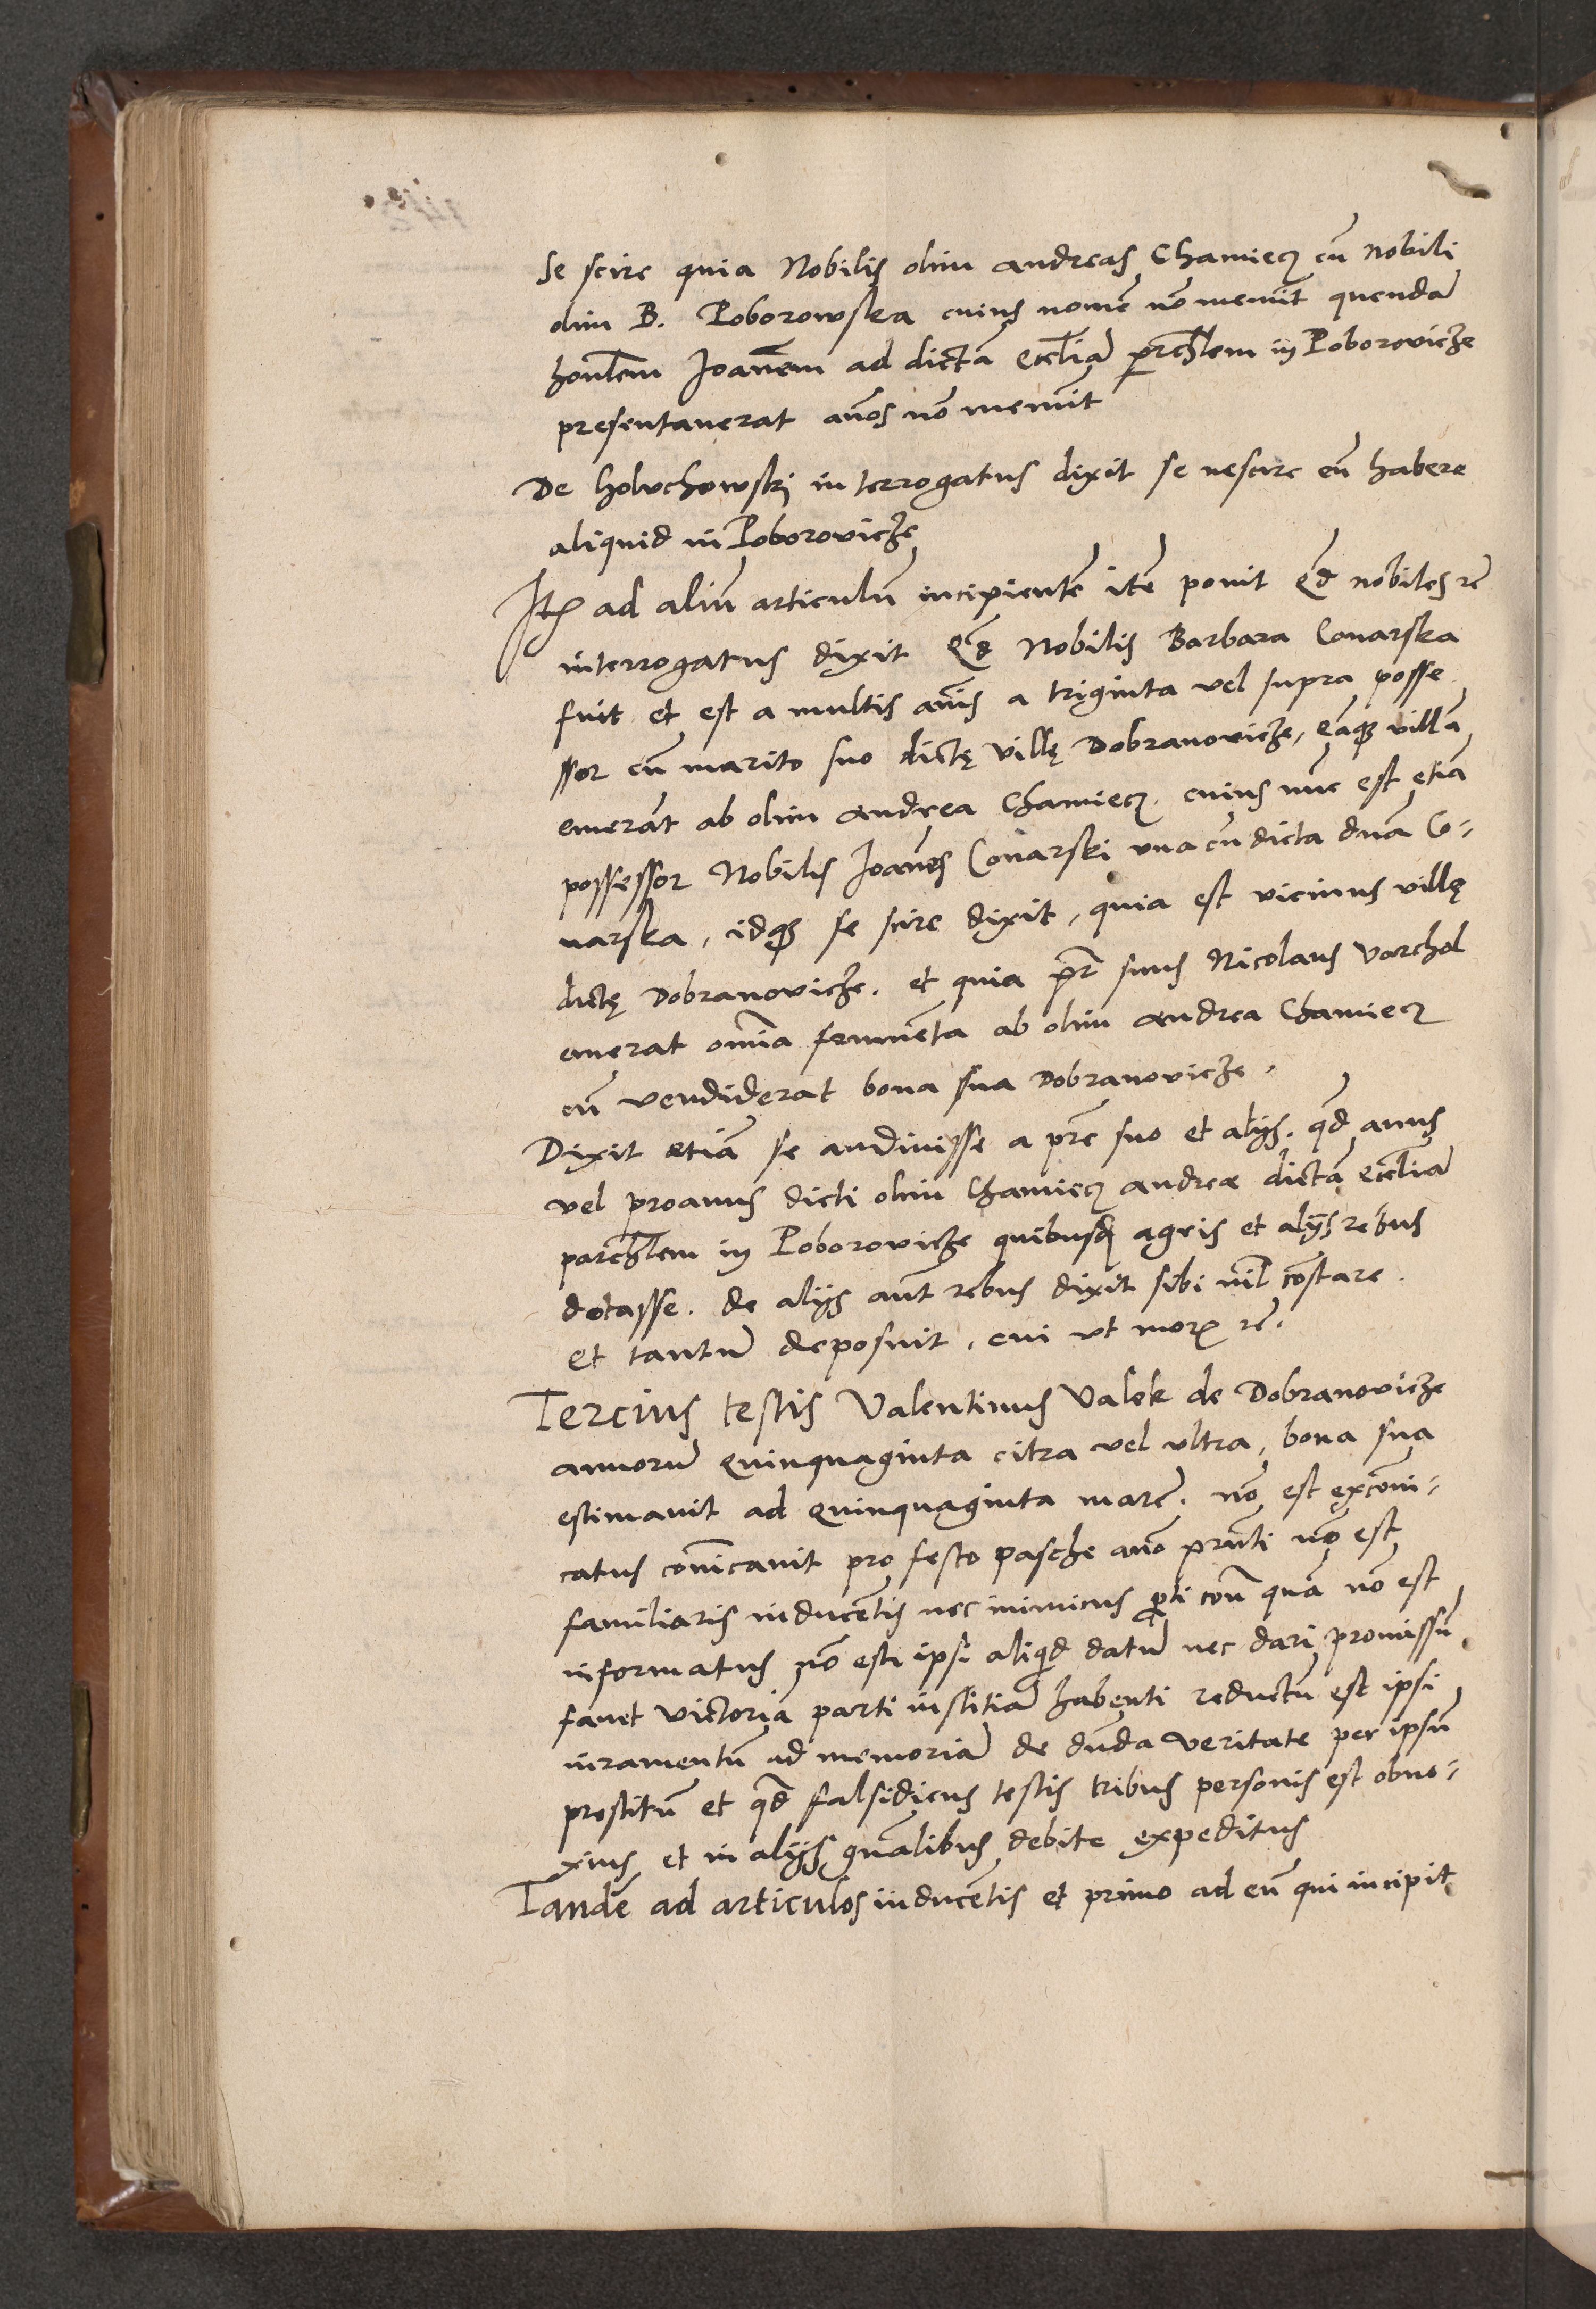 se scire quia Nobilis olim andreas Chamiecz cū nobili
olim B. Poborowska cuius nomē nō meminit quendā
honoblem Joannem ad dictā eccliā prchlem in Poborovicze
presentauerat annos nō meminit
De holvchowski interrogatus dixit se nescire eū habere
aliquid in Poborovicze
Itē ad aliū articulū incipientē itē ponit qd nobiles rē
interrogatus dixit qd Nobilis Barbara Conarska
fuit et est a multis annis a triginta vel supra posse
ssor cū marito suo dictę villę Dobranovicze, eāq villā
emerāt ab olim andrea Chamiecz. cuius nūc est etiā
possessor Nobilis Joannes Conarski una cū dicta dnā Co-
narska, idq se scire dixit, quia est vicinus villę
dictę Dobranovicze. et quia pr suus Nicolaus Varchol
emerat omīa frumēta ab olim andrea Chamiecz
cū vendiderat bona sua Dobranovicze.
Dixit etiā se audiuisse a pre suo et alijs. qd auus
vel proauus dicti olim Chamiecz andreæ dictā eccliā
parchlem in Poborovicze quibusd agris et alijs rebus
dotasse. de alijs aut rebus dixit sibi nil cōstare.
et tantū deposuit. cui ut moris rē.
Tercius testis Valentinus Valek de Dobranovicze
annorū quinquaginta citra vel ultra, bona sua
estimauit ad quinquaginta marc. nō est excōni-
catus cōnicauit pro festo pasche anno prnti nō est
familiaris inducētis nec inimicus pti contra quā nō est
informatus nō est ipsi aliqd datū nec dari promissū
fauet victoriā parti iustitiā habenti reductū est ipsi
iuramentū ad memoriā de dnda veritate per ipsū
prestitū et qd falsidicus testis tribus personis est obno-
xius et in alijs gnalibus debite expeditus
Tandē ad articulos inducētis et primo ad eū qui incipit